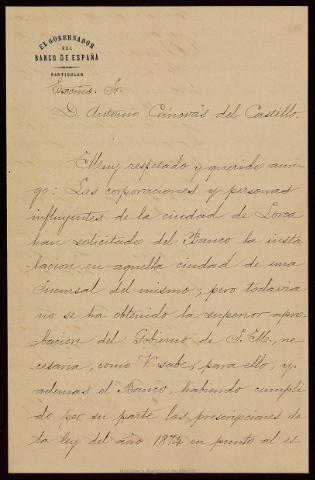 EL GOBERNADOR
DEL
BANCO DE ESPAÑA
PARTICULAR
Excmo. Sr.
D. Antonio Cánovas del Castillo.
Muy respetado y querido ami-
go: Las corporaciones y personas
influyentes de la ciudad de Lorca
han solicitado del Banco la insta-
lacion en aquella ciudad de una
Sucursal del mismo; pero todavia
no se ha obtenido la superior apro-
bacion del Gobierno de S. M., ne-
cesaria, como V. sabe, para ello, y
ademas el Banco, habiendo cumpli-
do por su parte las prescripciones de
la ley del año 1874 en punto al es